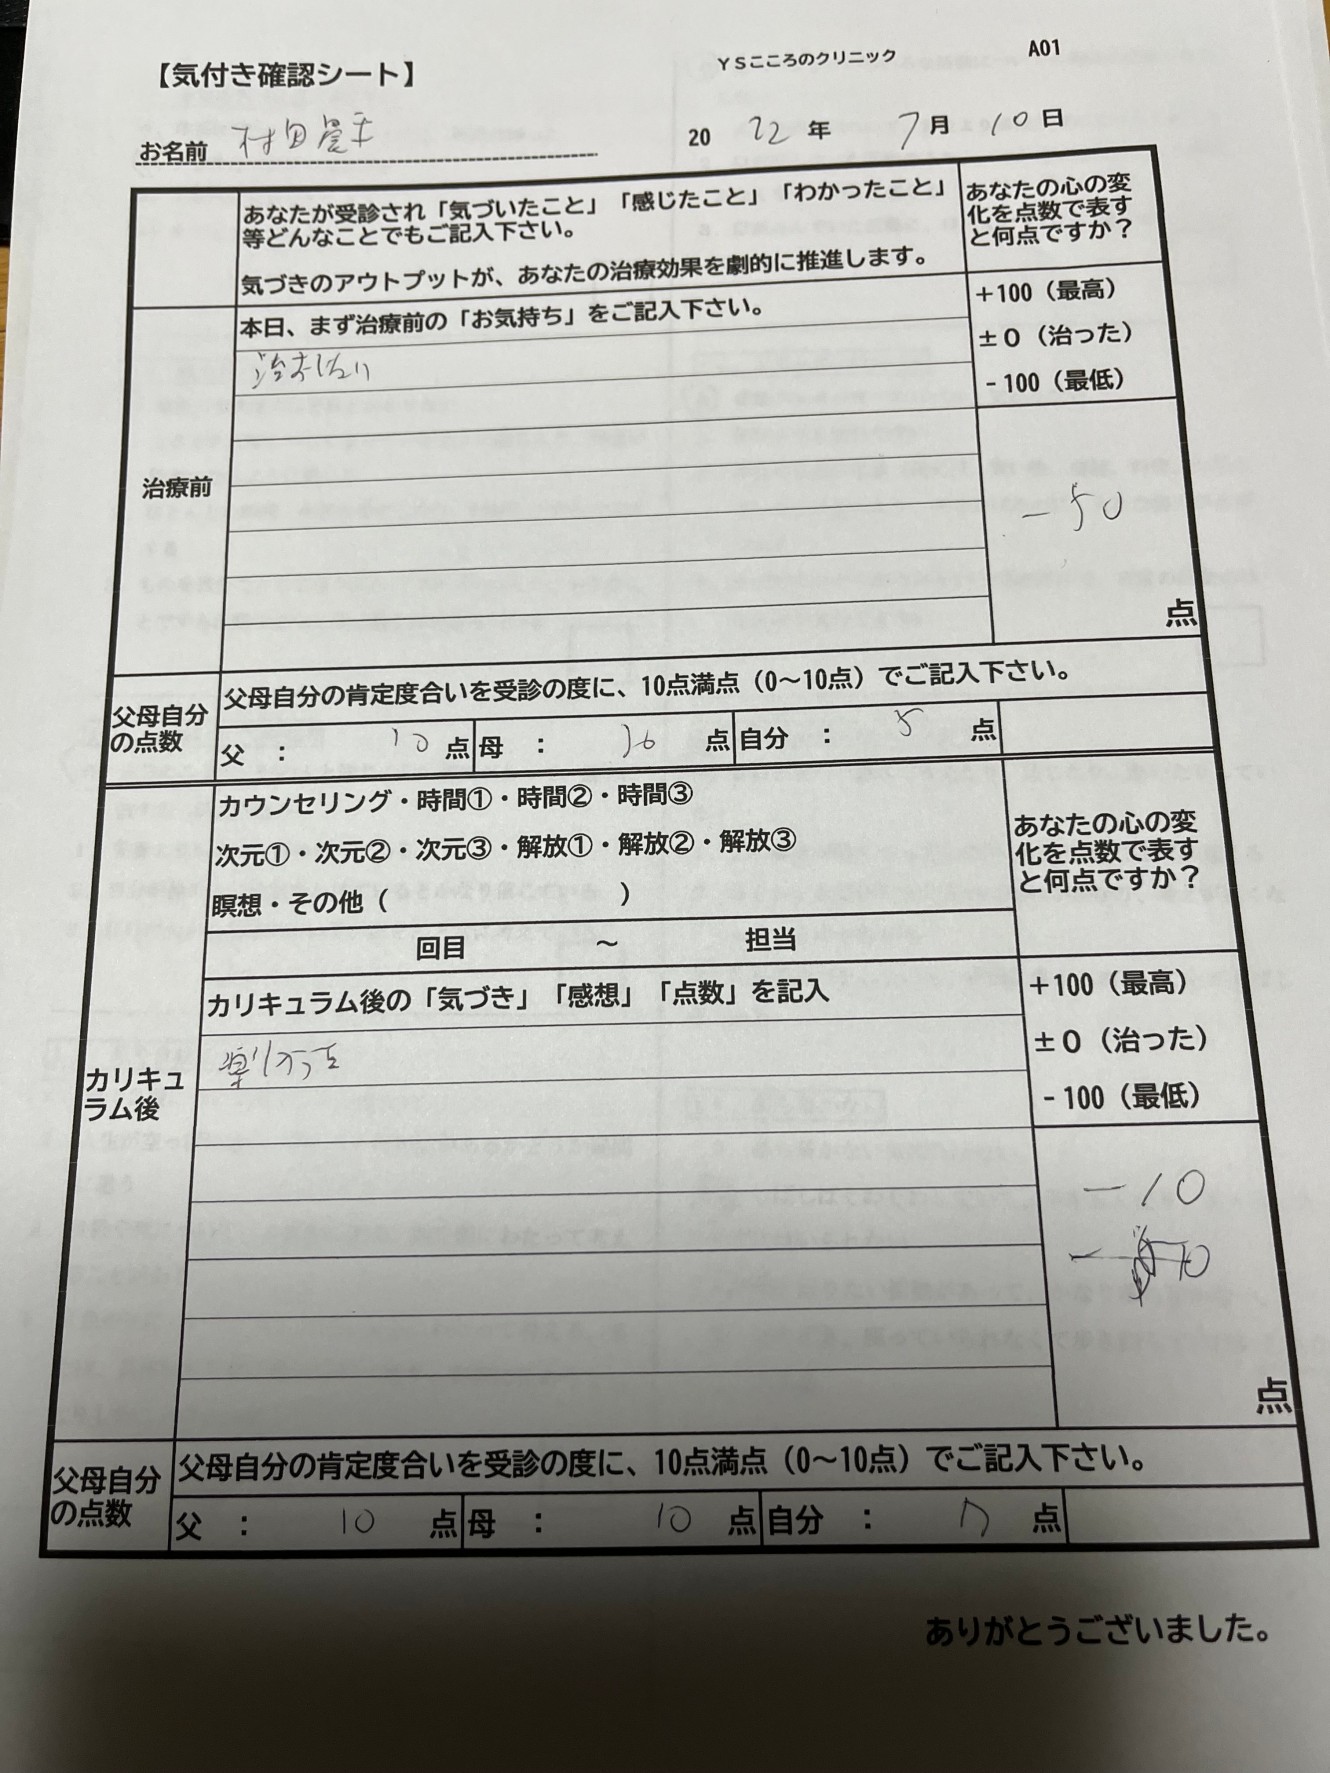 【気付き確認シート】
YSこころのクリニック
A01
お名前 村田
20 22 年 7月 10日
あなたが受診され「気づいたこと」「感じたこと」「わかったこと」
等どんなことでもご記入下さい。
気づきのアウトプットが、あなたの治療効果を劇的に推進します。
あなたの心の変
化を点数で表す
と何点ですか？
治療前
本日、まず治療前の「お気持ち」をご記入下さい。
治おしたい
+100（最高）
±0（治った）
-100（最低）
-50
点
父母自分
の点数
父母自分の肯定度合いを受診の度に、10点満点（0〜10点）でご記入下さい。
父 ： 10 点 母 ： 10 点 自分 ： 5 点
カリキュ
ラム後
カウンセリング・時間①・時間②・時間③
次元①・次元②・次元③・解放①・解放②・解放③
瞑想・その他（ ）
回目 〜 担当
あなたの心の変
化を点数で表す
と何点ですか？
カリキュラム後の「気づき」「感想」「点数」を記入
+100（最高）
±0（治った）
-100（最低）
-10
点
父母自分
の点数
父母自分の肯定度合いを受診の度に、10点満点（0〜10点）でご記入下さい。
父 ： 10 点 母 ： 10 点 自分 ： 7 点
ありがとうございました。